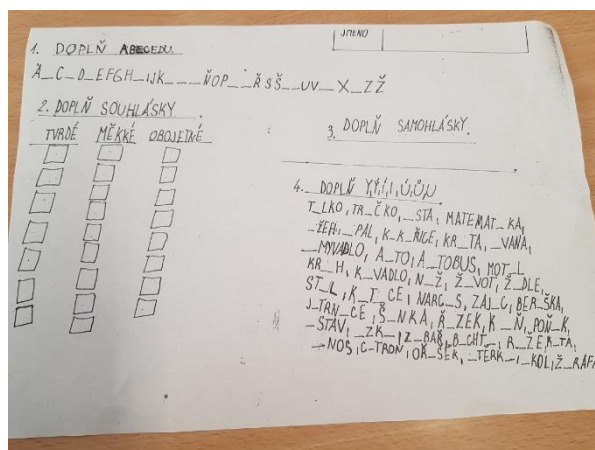 JMÉNO
1. DOPLŇ ABECEDU.
A_C_D_EFGH_IJK___ŇOP__ŘSŠ__UV__X_ZŽ
2. DOPLŇ SOUHLÁSKY.
TVRDÉ MĚKKÉ OBOJETNÉ
3. DOPLŇ SAMOHLÁSKY.
4. DOPLŇ Y,Ý,Í,I,Ú,Ů,U
T_LKO, TR_ČKO, _STA, MATEMAT_KA,
_PAL, K_K_ŘICE, KR_TA, _VANA,
_MYVADLO, A_TO, A_TOBUS, MOT_L
KR_H, K_VADLO, N_Ž, Ž_VOT, Ž_DLE,
ST_L, K_T_CE, NARC_S, ZAJ_C, BER_ŠKA,
J_TRN_CE, S_NKA, Ř_ZEK, K_Ň, POŇ_K,
_STAV, _ZK_, Z_BAŘ, B_CHT_, R_ŽE, K_TA,
_NOS, C_TRON, OŘ_ŠEK, _TĚRK_, _KOL, Ž_RAFA